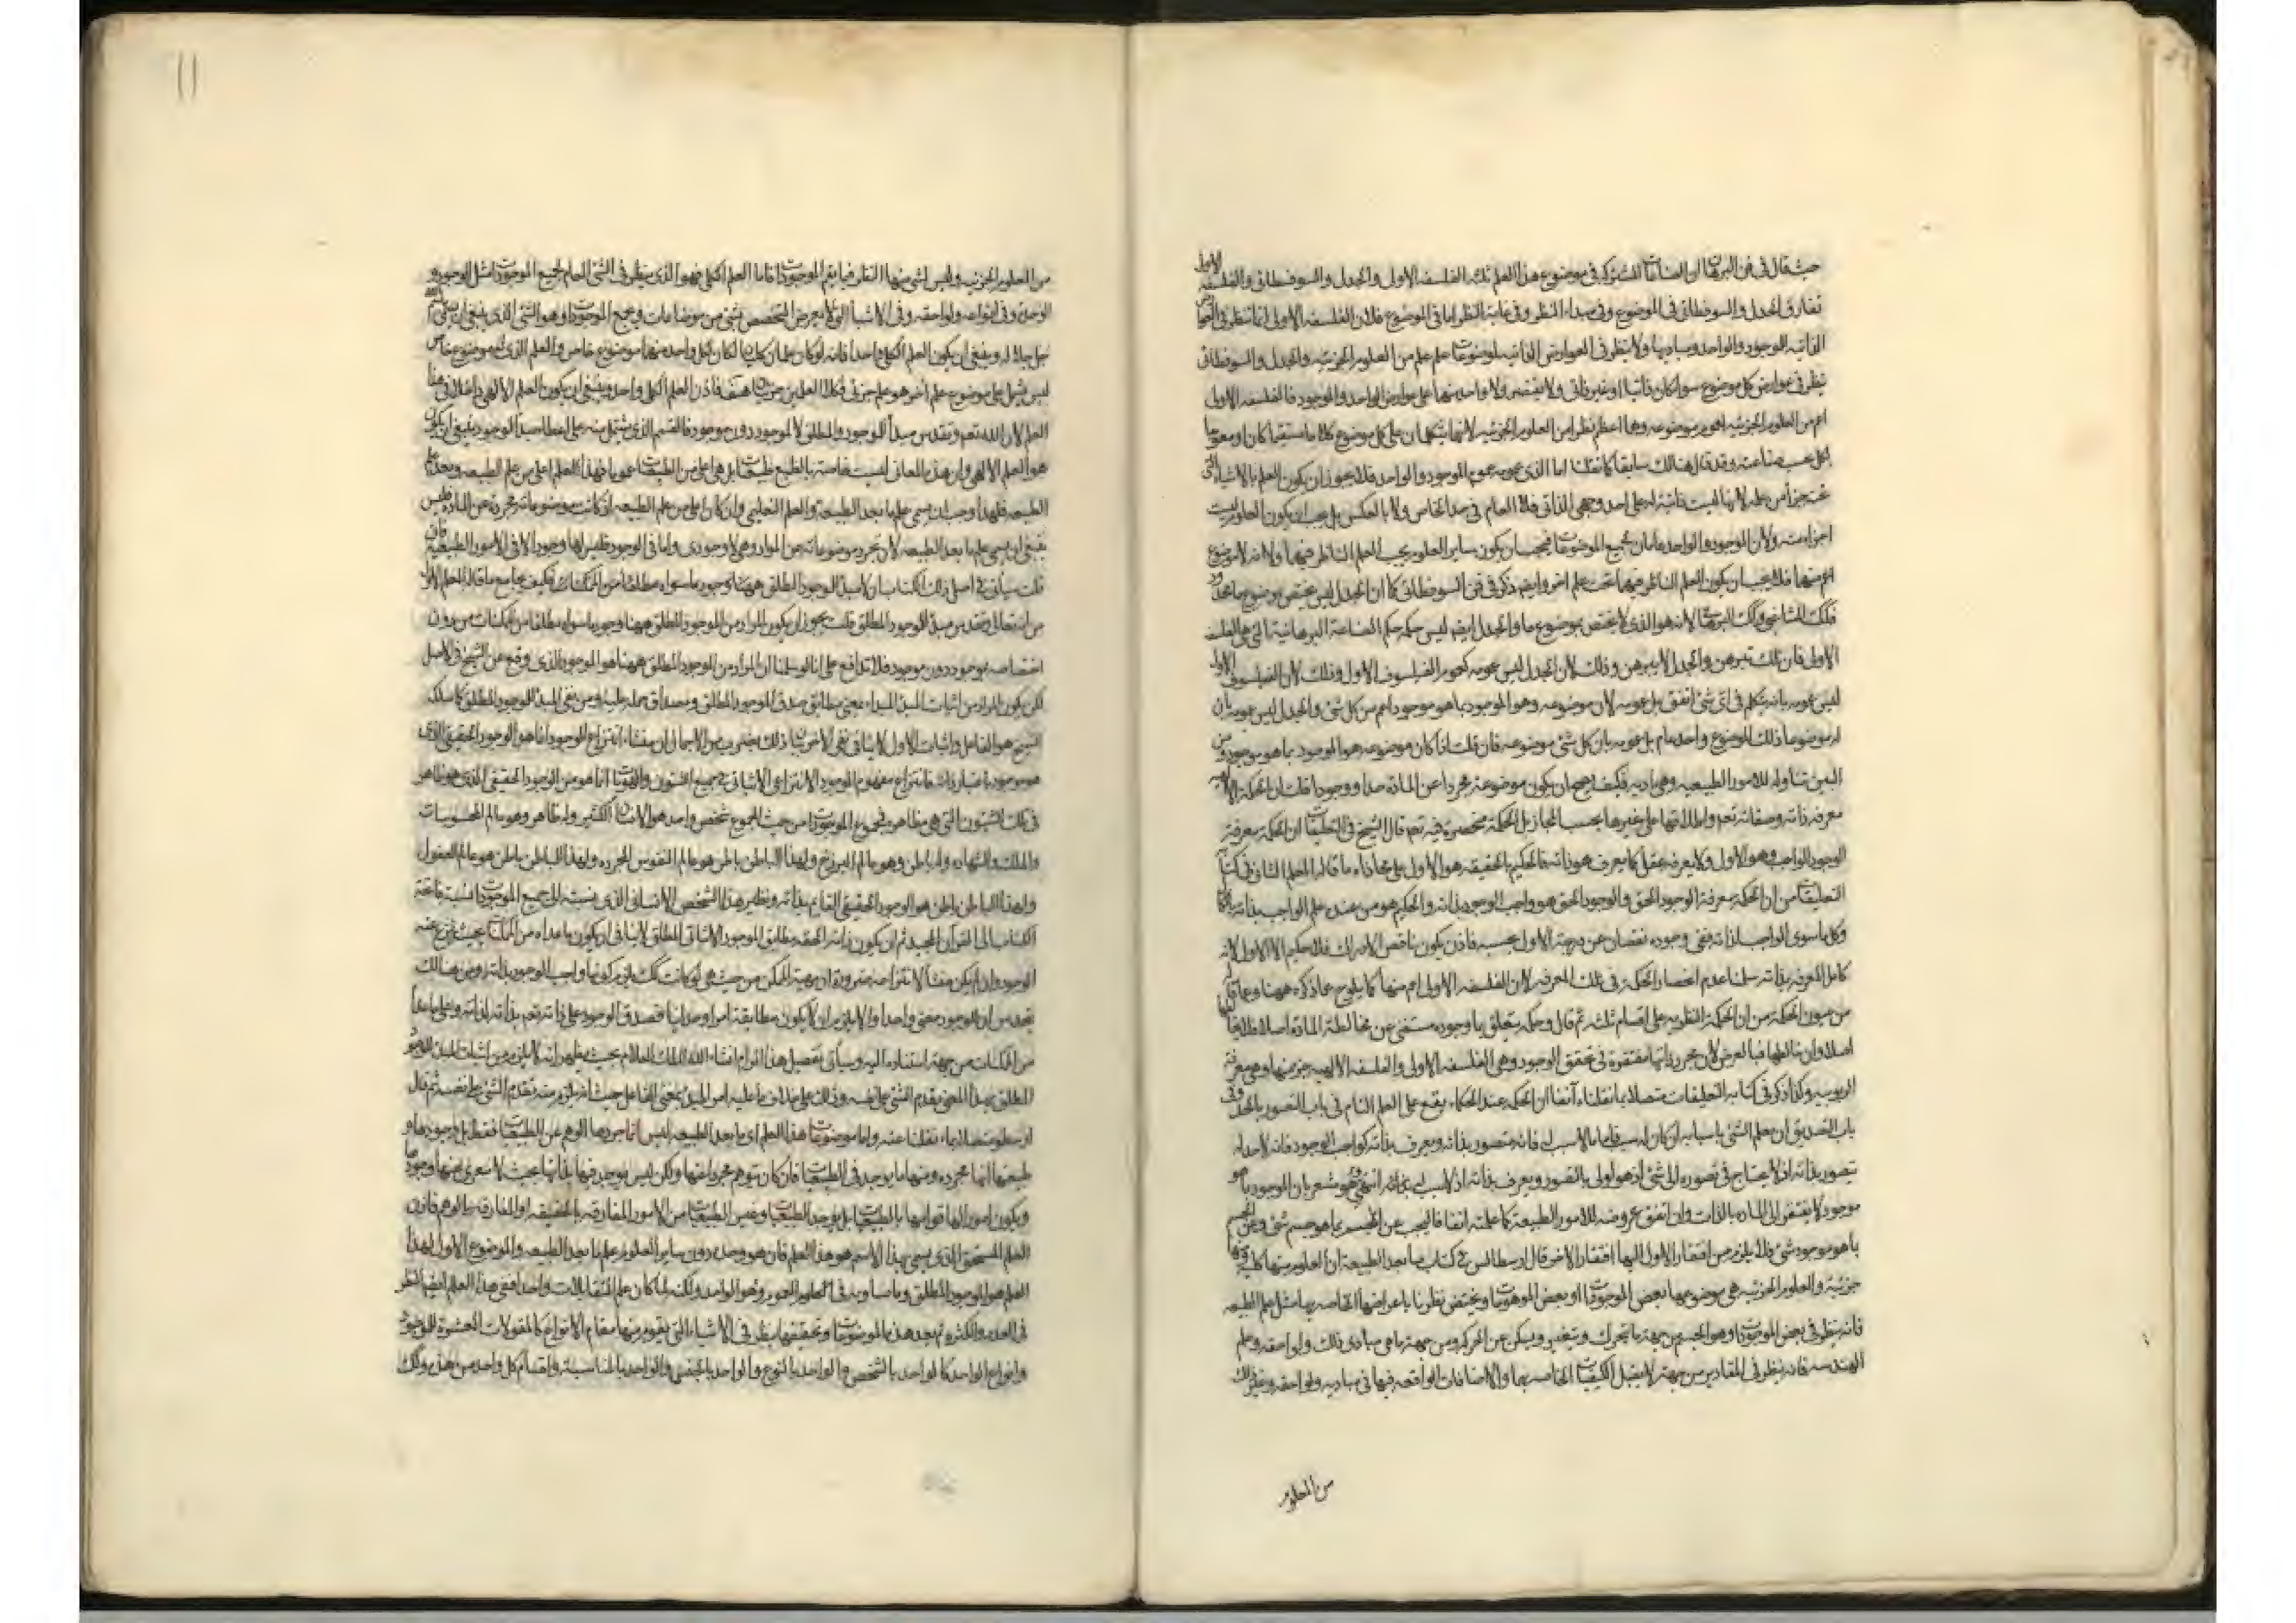 حيث قال في فن البرهان ان الصناعات المشتركة في موضوع هذا العلم ثلث الفلسفه الاولى والجدل والسوفسطائى والفلسفه الاولى
تفارق الجدل والسوفسطائى في الموضوع وفي مبداء النظر وفي غاية النظر اما في الموضوع فلان الفلسفه الاولى انما تنظر في العوارض
الذاتيه للموجود والواحد ومباديها ولا ينظر في العوارض الذاتيه لموضوعات علم علم من العلوم الجزئيه والجدل والسوفسطائى
ينظر في عوارض كل موضوع سواء كان ذاتيا او غير ذاتى ولا يقتصر ولا واحد منها على عوارض الواحد والموجود فالفلسفه الاولى
اعم من العلوم الجزئيه لعموم موضوعه وهما اعم نظرا من العلوم الجزئيه لانهما يتكلمان على كل موضوع كلاما مستقيما كان او معوجا
لكل بحسب صناعته وقد قال هنالك سابقا كما نقلنا اما الذى عمومه عموم الموجود والواحد فلا يجوز ان يكون العلم بالاشياء التى
تحت جزأ من علمه لانها ليست ذاتية له على احد وجهى الذاتى فلا العام في حد الخاص ولا بالعكس بل يجب ان يكون العلوم ليست
اجزاء منه ولان الموجود والواحد عامان لجميع الموضوعات فيجب ان يكون ساير العلوم تحت العلم الناظر فيهما ولانه لا موضوع
اعم منهما فلا يجب ان يكون العلم الناظر فيهما تحت علم اخر وايضا ذكر في فن السوفسطائى كما ان الجدل ليس يختص بموضوع ما محدود
الاولى فان تلك تبرهن والجدل لا يبرهن وذلك لان الجدل ليس عمومه كعموم الفيلسوف الاول وذلك لان الفيلسوف الاول
ليس عمومه بانه يتكلم في اى شئ اتفق بل عمومه لان موضوعه وهو الموجود بما هو موجود اعم من كل شئ والجدل ليس عمومه بان
له موضوعا ذلك الموضوع واحد عام بل عمومه بان كل شئ موضوعه فان قلت اذا كان موضوعه هو الموجود بما هو موجود ومن
البين تناوله للامور الطبيعيه وهى ماديه فكيف يصح ان يكون موضوعه مجردا عن المادة حدا ووجودا قلت ان الحكمة الالهيه
معرفة ذاته وصفاته تعم واطلاقها على غيرها بحسب المجاز بل الحكمة مختصة فيه تعم قال الشيخ في التعليقات ان الحكمة معرفة
الوجود الواجب وهو الاول ولا يعرفه عقل كما يعرف هو ذاته فالحكيم بالحقيقه هو الاول على محاذاه ما قاله المعلم الثانى في كتاب
التعليقات من ان الحكمة معرفة الوجود الحق والوجود الحق هو واجب الوجود بذاته والحكيم هو من عنده علم الواجب بذاته بالكمال
وكل ما سوى الواجب لذاته ففى وجوده نقصان عن درجة الاول بحسبه فاذن يكون ناقص الادراك فلا حكيم الا الاول لانه
كامل المعرفه بذاته سلمنا عدم انحصار الحكمة في تلك المعرفه لان الفلسفه الاولى اعم منها كما يلوح مما ذكره ههنا
من عيون الحكمة من ان الحكمة النظريه على اقسام ثلثه ثم قال وحكمة يتعلق بما وجوده مستغنى عن مخالطة المادة اصلا فلا يخالطها
اصلا وان خالطها فبالعرض لان مجرد ذاتها مفتقرة في تحقق الوجود وهى الفلسفه الاولى والفلسفه الالهيه جزء منها وهى معرفة
الربوبيه وكذا ذكر في كتابه التعليقات متصلا بما نقلناه آنفا ان الحكمة عند الحكماء يقع على العلم التام في باب التصور بالحد وفى
باب التصديق ان يعلم الشئ باسبابه ان كان له سبب فاما ما لا سبب له فانه متصور بذاته ويعرف بذاته كواجب الوجود فانه لا حد له
يتصور بذاته اذ لا يحتاج في تصوره الى شئ اذ هو اولى بالتصور ويعرف بذاته اذ لا سبب له انتهى وهو مشعر بان الموجود بما هو
موجود لا يفتقر الى الماده بالذات وان اتفق عروضه للامور الطبيعية كما علمته انفا فالبحث عن الجسم بما هو جسم شئ وعن الجسم
بما هو موجود شئ فلا يلزم من افتقار الاول اليها افتقار الاخر قال ارسطاطاليس في كتاب ما بعد الطبيعه ان العلوم منها كليه ومنها
جزئية والعلوم الجزئيه هى موضوعها بعض الموجودات او بعض الموهومات ويختص نظرنا باعراضها الخاصه بها مثل علم الطبيعه
فانه ينظر في بعض الموجودات وهو الجسم من جهة ما يتحرك ويتغير ويسكن عن الحركه ومن جهة ما هى مبادى ذلك ولواحقه وعلم
الهندسه فانه ينظر في المقادير من جهة ما يقبل الكيفيات الخاصه بها والاضافات الواقعه فيها في مباديه ولواحقه وغير ذلك
من العلوم
١١
من العلوم الجزئيه وليس لشئ منها النظر فيما يعم الموجودات فاما العلم الكلى فهو الذى ينظر في الشئ العام لجميع الموجودات مثل الوجود و
الوحدة وفى انواعه ولواحقه وفى الاشياء التى لا يعرض بالتخصص بشئ شئ من موضوعات وجميع الموجودات وهو الشئ الذى ينبغى ان يسمى الله
جل جلاله وينبغى ان يكون العلم الكلى واحدا فانه لو كان علمان كليان لكان لكل واحد منهما موضوع خاص والعلم الذى له موضوع خاص
ليس يشمل على موضوع علم اخر هو علم جزئى فكلا العلمين جزئيان هف فاذن العلم الكلى واحد وينبغى ان يكون العلم الالهى داخلا في هذا
العلم لان الله تعم وتقدس مبدأ للموجود والمطلق لا لموجود دون موجود فالقسم الذى يشتمل منه على اعطاء مبدأ الوجود ينبغى ان يكون
هو العلم الالهى ولان هذه المعانى ليست خاصة بالطبيعيات بل هو اعلى من الطبيعيات عموما فهذا العلم اعلى من علم الطبيعه وبعد علم
الطبيعه فلهذا وجب ان يسمى علم ما بعد الطبيعة والعلم التعليمى وان كان اعلى من علم الطبيعه اذ كانت موضوعاته مجردة عن المادة فليس
ينبغى ان يسمى علم ما بعد الطبيعه لان تجرد موضوعاته عن المواد وهمى لا وجودى واما في الوجود فليس لها وجود الا في الامور الطبيعيه فان
قلت سيأتى في اصل ذلك الكتاب ان لا مبدأ للوجود المطلق فكيف يجامع ما قاله المعلم الاول
من انه تعالى وتقدس مبدأ للموجود المطلق قلت يجوز ان يكون المراد من الموجود المطلق ههنا وجود ما سواه مطلقا من الممكنات من دون
اختصاصه بموجود دون موجود فلا تدافع على انا لو سلمنا ان المراد من الوجود المطلق ههنا هو الموجود الذى وقع عن الشيخ في الاصل
لكن يكون المراد من اثبات المبدأ المبداء بمعنى مطابق صدق الموجود المطلق ومصداق حمله عليه ومن نفى المبدأ للوجود المطلق كما سلكه
الشيخ هو الفاعل واثبات الاول لا ينافى نفى الاخر بيان ذلك بضرب من الاجمال ان منشاء انتزاع الوجود انما هو الوجود الحقيقى الذى
هو موجود باعتبار ذاته فانتزاع مفهوم الموجود الانتزاعى الاثباتى في جميع الشئون والهويات انما هو من الوجود الحقيقى الذى هو ظاهر
في تلك الشئون التى هى مظاهره فجموع الموجودات من حيث المجموع شخص واحد هو الانسان الكبير وله ظاهر وهو عالم المحسوسات
والملك والشهاده وله باطن وهو عالم البرزخ ولهذا الباطن باطن هو عالم النفوس المجرده ولهذا الباطن باطن هو عالم العقول
ولهذا الباطن باطن هو الوجود الحقيقى القايم بذاته ونظير هذا الشخص الانسانى الذى نسبته الى جميع الموجودات نسبة فاتحة
الكتاب الى القرآن المجيد ثم ان يكون ذاته الحقه مطابق الموجود الاثباتى المطلق لا ينافى ان يكون ما عداه من الممكنات بحيث ينتزع عنه
الوجود وان لم يكن منشأ لانتزاعه ضرورة ان مهية الممكن من حيث هى لو كانت كك لزم كونها واجب الوجود بذاته ومن هنالك
يحدس ان للوجود معنى واحدا والا يلزم ان لا يكون مطابقه امرا وحدانيا فصدق الوجود على ذاته تعم بذاته لذاته وعلى ما عداه
من الممكنات من جهة استناده اليه وسيأتى تفصيل هذا المرام انشاء الله الملك العلام بحيث يظهر انه لا يلزم من اثبات المبدأ للوجود
المطلق بهذا المعنى تقدم الشئ على نفسه وذلك على خلاف ما عليه امر المبدأ بمعنى الفاعل حيث انه يلزم منه تقدم الشئ على نفسه ثم قال
ارسطو متصلا بما نقلنا عنه واما موضوعات هذا العلم اى ما بعد الطبيعه ليس انما جردها الوهم عن الطبيعيات فقط بل وجودها و
طبيعتها انها مجرده ومنها ما يوجد في الطبيعيات فان كان يتوهم مجردا عنها ولكن ليس يوجد فيها بذاتها بحيث لا يتعرى عنها وجودها
ويكون امور لها قوامها بالطبيعيات بل يوجد الطبيعيات وغير الطبيعيات من الامور المفارقه بالحقيقه او المفارقه بالوهم فاذن
العلم المستحق الذى يسمى بهذا الاسم هو هذا العلم فان هو وحده دون ساير العلوم علم ما بعد الطبيعه والموضوع الاول لهذا
العلم هو الموجود المطلق وما يساويه في العلوم العموم وهو الواحد ولكنه لما كان علم المتقابلات واحدا ففى هذا العلم ايضا النظر
في العدم والكثرة ثم بعد هذه الموضوعات وتحقيقها ينظر في الاشياء التى يقوم منها مقام الانواع كالمقولات العشرة للموجود
وانواع الواحد كالواحد بالشخص والواحد بالنوع والواحد بالجنس والواحد بالمناسبة واقسام كل واحد من هذه وكك